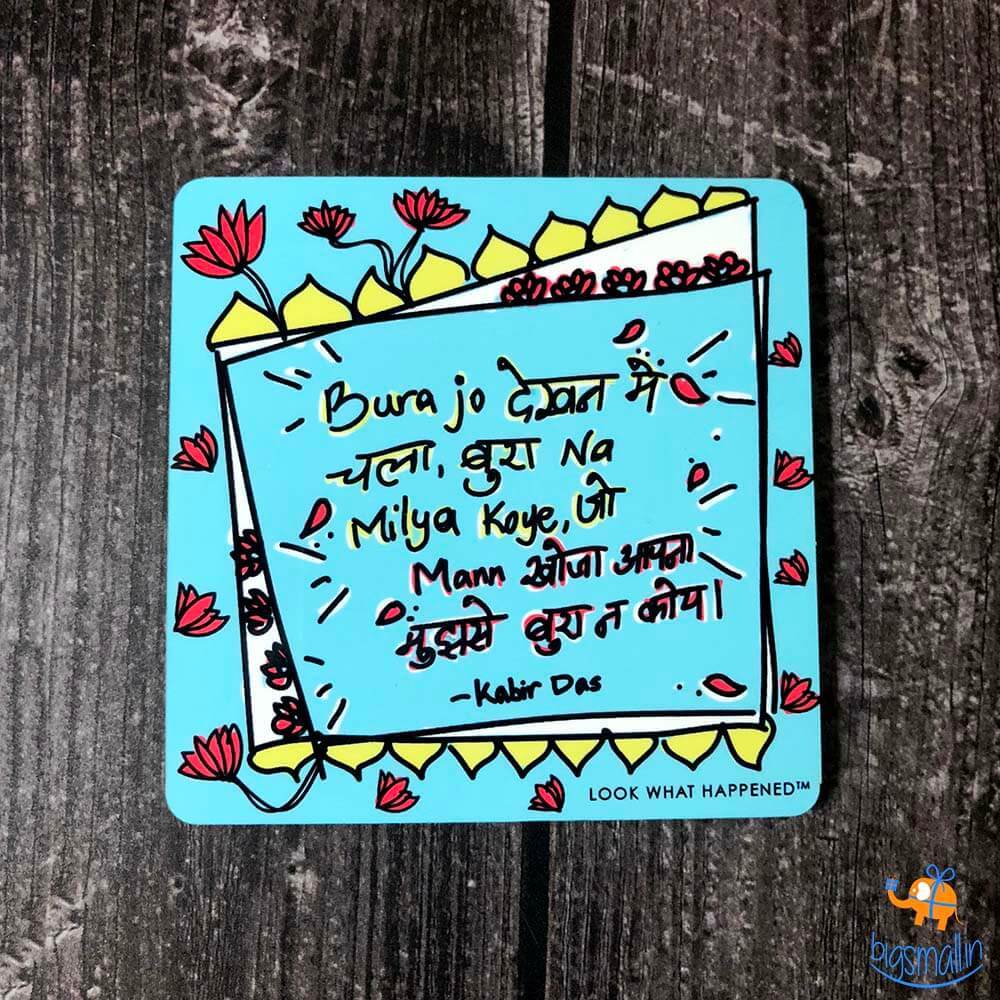 Bura jo देखन मे
चला, बुरा Na
Milya Koye, जो
Mann खोजा आपना
मुझसे बुरा न कोय।
-Kabir Das
LOOK WHAT HAPPENED™
bigsmall.in